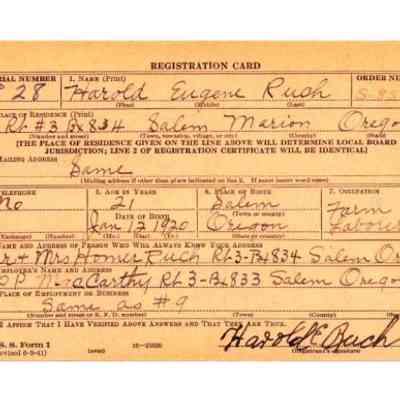 REGISTRATION CARD
SERIAL NUMBER 1. NAME (Print) ORDER NU
28 Harold Eugene Ruch
(First) (Middle) (Last)
PLACE OF RESIDENCE (Print)
Rt #3 Bx 834 Salem Marion Orego
(Number and street) (Town, township, village, or city) (County) (State)
[THE PLACE OF RESIDENCE GIVEN ON THE LINE ABOVE WILL DETERMINE LOCAL BOARD
JURISDICTION; LINE 2 OF REGISTRATION CERTIFICATE WILL BE IDENTICAL]
MAILING ADDRESS
Same
[Mailing address if other than place indicated on line 2. If same insert word same]
TELEPHONE 5. AGE IN YEARS 6. PLACE OF BIRTH 7. OCCUPATION
No 21 Salem Farm
DATE OF BIRTH
Jan 1920 Oregon Laborer
(Exchange) (Number) (Mo.) (Day) (Yr.) (State or country)
NAME AND ADDRESS OF PERSON WHO WILL ALWAYS KNOW YOUR ADDRESS
r + Mrs Homer Ruch Rt 3-Bx 834 Salem Or
EMPLOYER'S NAME AND ADDRESS
P MacCarthy Rt 3-Bx 833 Salem Orego
PLACE OF EMPLOYMENT OR BUSINESS
Same as #9
(Number and street or R. F. D. number) (Town) (County) (State)
I AFFIRM THAT I HAVE VERIFIED ABOVE ANSWERS AND THAT THEY ARE TRUE.
S. S. Form 1 Harold Ruch
(over) Registrant's signature